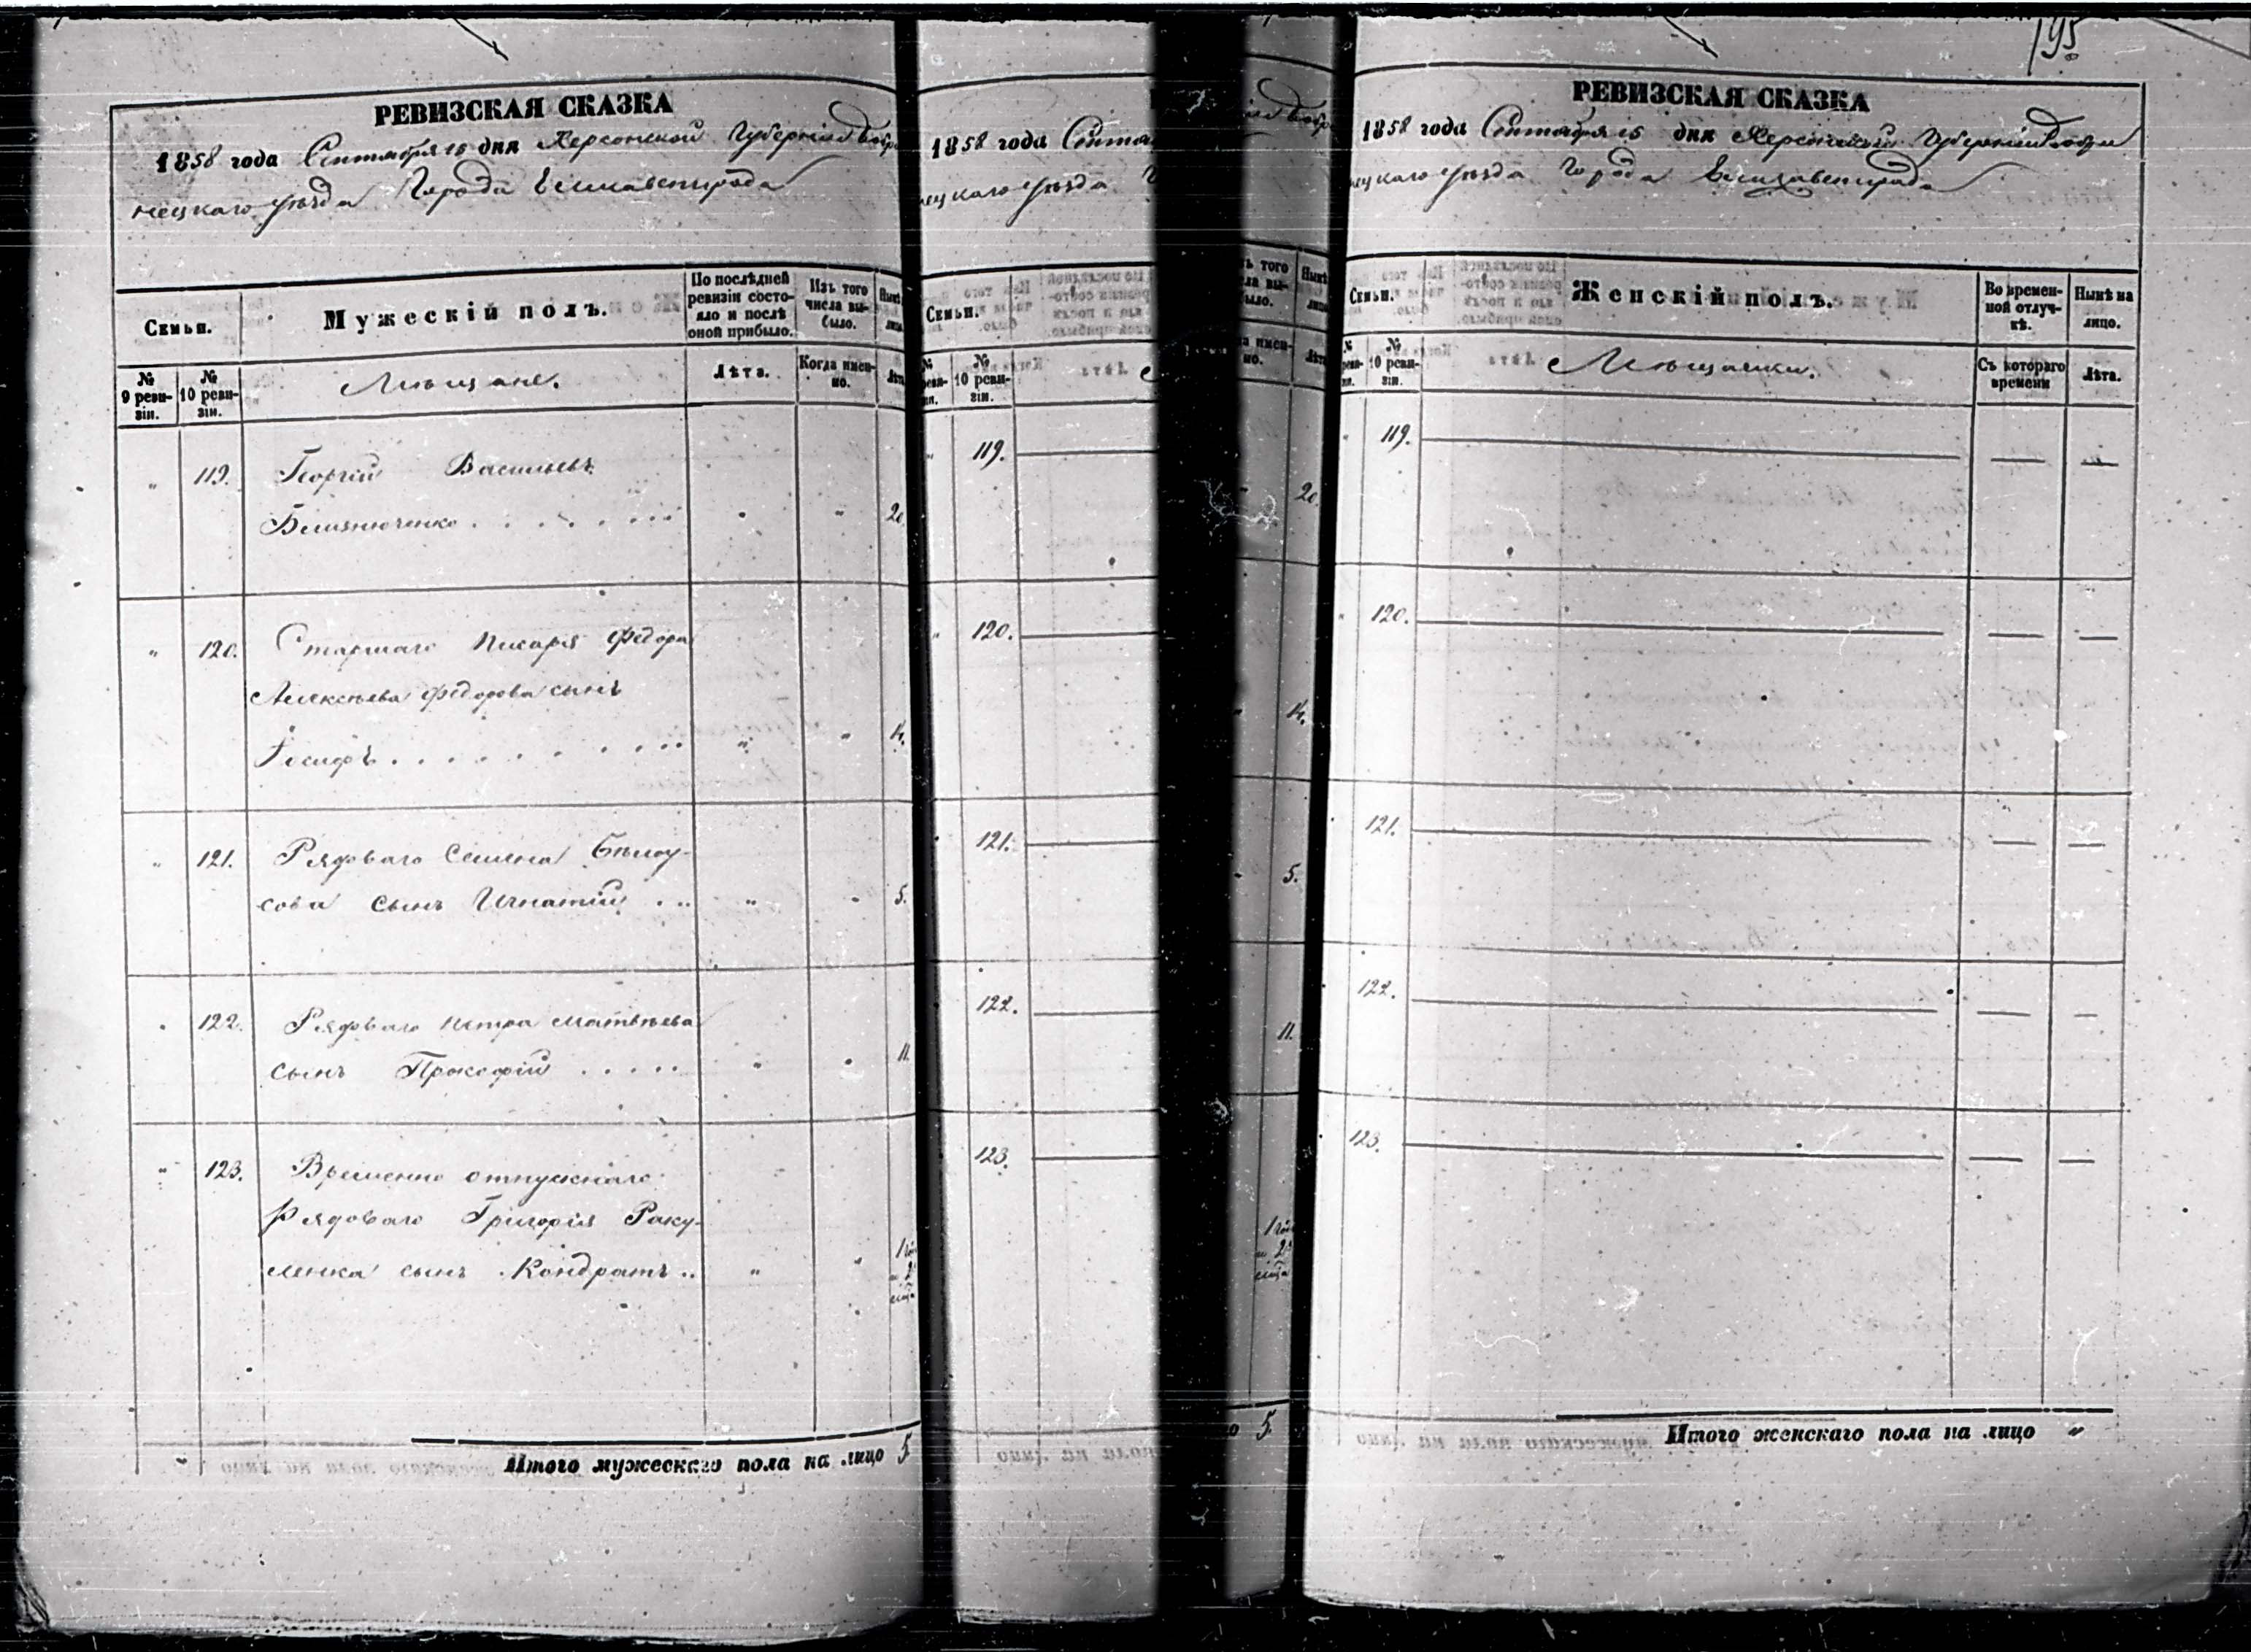 195
РЕВИЗСКАЯ СКАЗКА
1858 года Сентября 15 дня Херсонской Губернии Бобри
нецкаго уѣзда Города Елисаветграда
Семьи.
Мужескій полъ.
По послѣдней ревизіи состояло и послѣ оной прибыло.
Изъ того числа выбыло.
Нынѣ
№ 9 ревизіи.
№ 10 ревизіи.
Мѣщане.
Лѣта.
Когда именно.
Лѣта
" 119. Георгій Васильевъ
. . . . . . . " " 20.
" 120. Старшаго Писаря Федора
Алексѣева Федорова сынъ
Іосифъ . . . . . . . . " " 14.
" 121. Рядоваго Семена Бѣлоу-
сова сынъ Игнатій . .. " " 5.
" 122. Рядоваго Петра Матвѣева
сынъ Прокофій . . . . . " " 11.
" 123. Временно отпускнаго
Рядоваго Григорія Раку-
ленка сынъ Кондратъ .. " "
Итого мужескаго пола на лицо 5
1858 года Сентя
нецкаго уѣзда
Семьи.
№ 10 ревизіи.
119.
120.
121.
122.
123.
20.
14.
5.
11.
5.
РЕВИЗСКАЯ СКАЗКА
1858 года Сентября 15 дня Херсонской Губерніи Бобри
нецкаго уѣзда Города Елисаветграда
Семьи.
Женскій полъ.
Во временной отлучкѣ.
Нынѣ на лицо.
№ 10 ревизіи.
Мѣщанки.
Съ котораго времени
Лѣта.
" 119. — — —
" 120. — — —
121. — — —
122. — — —
123. — — —
Итого женскаго пола на лицо "